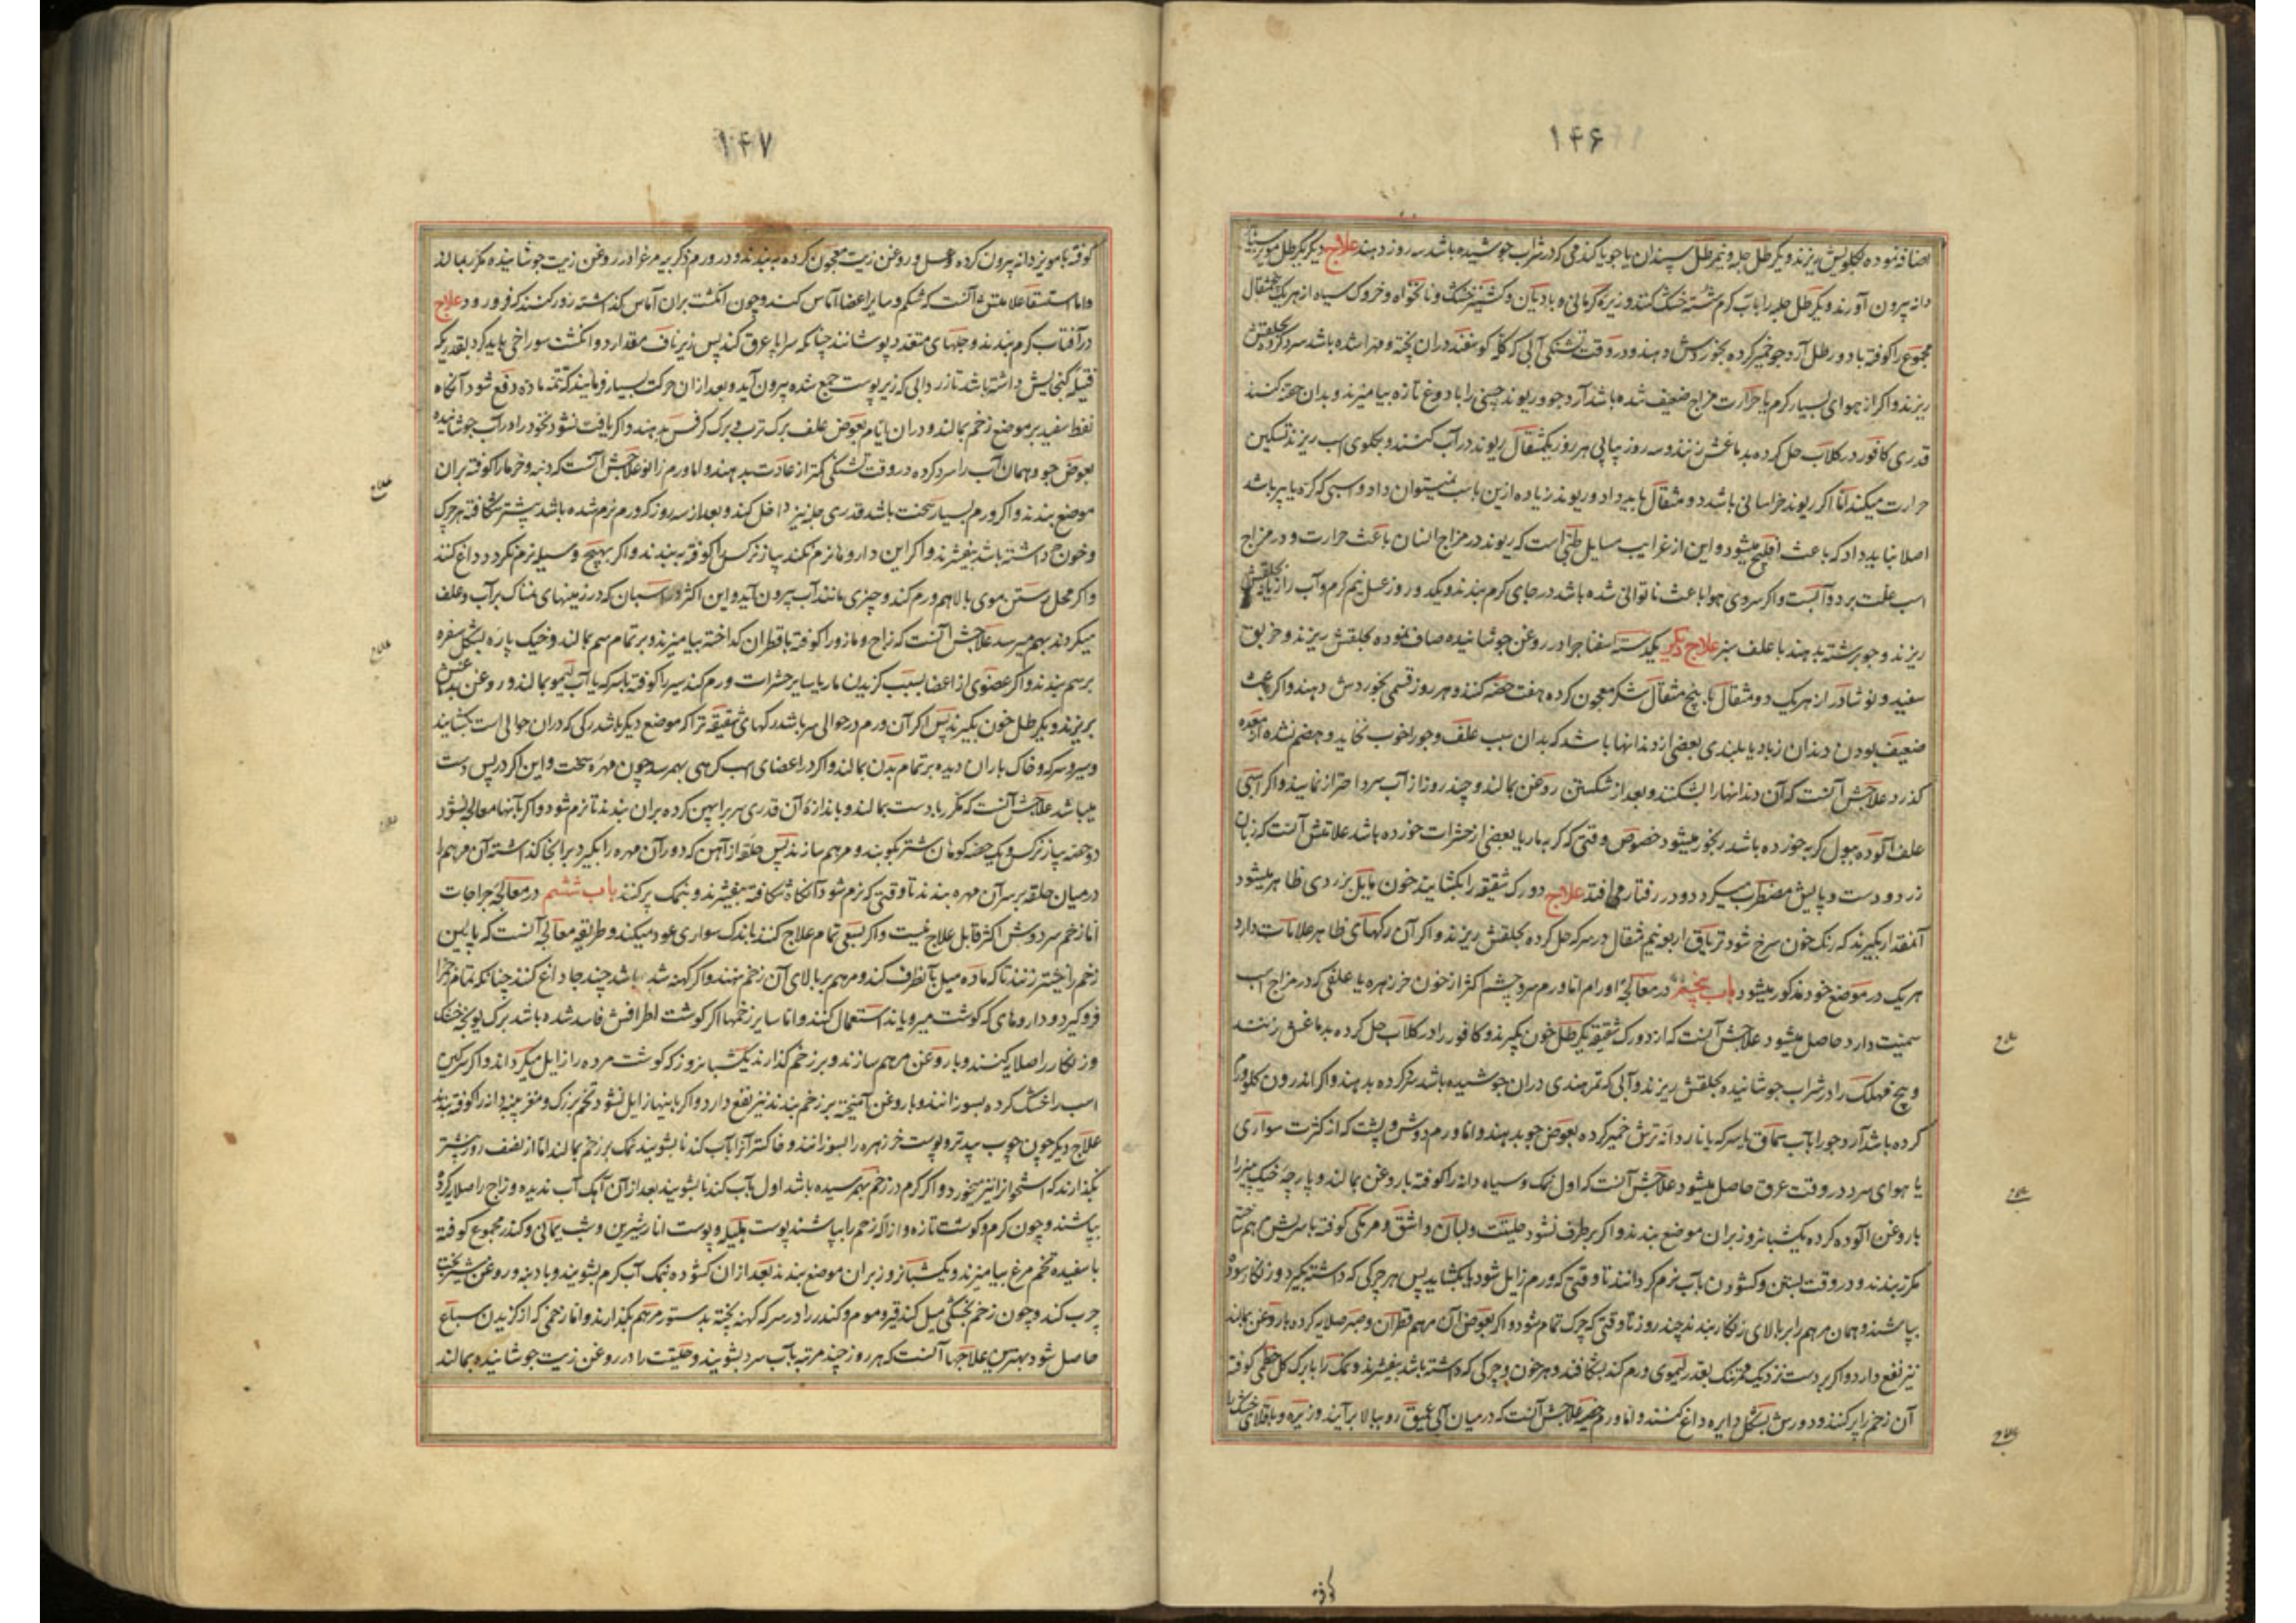 ۱۴۶
اضافه نموده بگلویش ریزند و یکرطل جله و نیم رطل سپندان یا جو یا کندمی که در شراب جوشیده باشد سه روز دهند علاج دیگر یکرطل مویز سیاه
دانه بیرون آورند و یکرطل حلبه را بآب کرم شسته خشک کنند و زیره کرمانی و بادیان و کشنیز خشک و نانخواه و خروک سیاه از هریک مثقال
مجموع را کوفته با دو رطل آرد جو خمیر کرده بخوردش دهند و در وقت تشنکی آبی که کله کوسفند در ان پخته و مهرا شده باشد سرد کرده بحلقش
ریزند و اکر از هوای بسیار کرم یا حرارت مزاج ضعیف شده باشد آرد جو و ریوند چینی را با دوغ تازه بیامیزند و بدان حقنه کنند
قدری کافور در کلاب حل کرده بدماغش زنند و سه روز پیاپی هر روز یکمثقال ریوند در آب کنند و بکلوی اسب ریزند تسکین
حرارت میکند امّا اکر ریوند خراسانی باشد دو مثقال باید داد و ریوند زیاده ازین باسب نمیتوان داد و اسبی که کره یا پیر باشد
اصلا نباید داد که باعث افلیج میشود و این از غرایب مسایل طبی است که ریوند در مزاج انسان باعث حرارت و در مزاج
اسب علت برد و آبست و اکر سردی هوا باعث ناتوانی شده باشد در جای کرم بندند و یکدو روز عسل نیم کرم و آب رازیانه بحلقش
ریزند و جو برشته بدهند با علف سبز علاج دیگر یکدسته اسفناج را در روغن جوشانیده صاف نموده بحلقش ریزند و خربق
سفید و نوشادر از هریک دو مثقال با پنج مثقال شکر معجون کرده هفت حصّه کنند و هر روز قسمی بخوردش دهند و اکر باعث
ضعیف بودن دندان زیاد یا بلندی بعضی از دندانها باشد که بدان سبب علف و جو را خوب نخاید و هضم نشده از معده
کذرد علاجش آنست که آن دندانها را بشکنند و بعد از شکستن روغن بمالند و چند روز از آب سرد احتراز نمایند و اکر اسبی
علف آلوده ببول کربه خورده باشد رنجور میشود خصوص وقتی که کربه مار یا بعضی از حشرات خورده باشد علامتش آنست که زبان
زرد و دست و پایش مضطرب میکردد و در رفتار می افتد علاج دو رک شقیقه را بکشایند خون مایل بزردی ظاهر میشود
آنمقدار بگیرند که رنک خون سرخ شود تریاق اربعه نیم مثقال در سرکه حل کرده بحلقش ریزند و اکر آن رکهای ظاهر علامات دارد
هریک در موضع خود مذکور میشود باب پنجم در معالجهٔ اورام امّا ورم سر و چشم اکثر از خوردن خرزهره یا علفی که در مزاج اسب
سمیت دارد حاصل میشود علاجش آنست که از دو رک شقیقه یکرطل خون بگیرند و کافور را در کلاب حل کرده بدماغش زنند
و بیخ مهلک را در شراب جوشانیده بحلقش ریزند و آبی که تمر هندی در ان جوشیده باشد سرد کرده بدهند و اکر اندرون کلو ورم
کرده باشد آرد جو را بآب سماق یا سرکه یا ناردانهٔ ترش خمیر کرده بعوض جو بدهند و امّا ورم دوش و پشت که از کثرت سواری
یا هوای سرد در وقت عرق حاصل میشود علاجش آنست که اول نمک و سیاه دانه را کوفته با روغن بمالند و پارچهٔ خیک پنیر را
با روغن آلوده کرده یکشبانروز بران موضع بندند و اکر برطرف نشود حلتیت و لبان و اشق و مرمکی کوفته با سریش مرهم ساخته
مکرر بندند و در وقت بستن و کشودن بآب نرم کردانند تا وقتی که ورم زایل شود یا بکشاید پس هر چرکی که داشته بگیرد و زنکار سوده
بپاشند و همان مرهم را بر بالای زنکار بندند چند روز تا وقتی که چرک تمام شود و اکر بعوض آن مرهم قطران و صبر صلایه کرده با روغن بمالند
نیز نفع دارد و اکر بر دست نزدیک تنک بقدر لیموی ورم کند بشکافند و هر خون و چرکی که داشته باشد بیفشرند و نمک را با برک کل خطمی کوفته
آن زخم را پر کنند و دورش بشکل دایره داغ کنند و امّا ورم خصیه علاجش آنست که در میان آبی عمیق رو ببالا برآیند و زیره و باقلای خشک را
علاج
علاج
علاج
کوفته
۱۴۷
کوفته با مویز دانه بیرون کرده و عسل و روغن زیت معجون کرده به بندند و در ورم ذکر پیه مرغ را در روغن زیت جوشانیده مکرر بمالند
و امّا استسقا علامتش آنست که شکم و سایر اعضا آماس کند و چون انکشت بران آماس کذاشته زور کنند که فرو رود علاج
در آفتاب کرم بندند و جلهای متعدد پوشانند چنانکه سراپا عرق کند پس زیر ناف مقدار دو انکشت سوراخی باید کرد بقدریکه
فتیله کنجایش داشته باشد تا زردابی که زیر پوست جمع شده بیرون آید و بعد از ان حرکت بسیار فرمایند که تتمه ماده دفع شود آنکاه
نفط سفید بر موضع زخم بمالند و در ان ایام بعوض علف برک ترب و برک کرفس بدهند و اکر یافت نشود نخود را در آب جوشانیده
بعوض جو و همان آب را سرد کرده در وقت تشنکی کمتر از عادت بدهند و امّا ورم زانو علاجش آنست که دنبه و خرما را کوفته بران
موضع بندند و اکر ورم بسیار سخت باشد قدری حلبه نیز داخل کنند و بعد از سه روز که ورم نرم شده باشد بنیشتر شکافته هر چرک
و خون که داشته باشد بیفشرند و اکر این داروها نرم نکند پیاز نرکس را کوفته به بندند و اکر بهیچ وسیله نرم نکردد داغ کنند
و اکر محل رستن موی بالا هم ورم کند و چیزی مانند آب بیرون آید و این اکثر در اسبان که در زمینهای نمناک پر آب و علف
میکردند بهم میرسد علاجش آنست که زاج و مازو را کوفته با قطران کداخته بیامیزند و بر تمام سم بمالند و خیک پاره بشکل سفره
بر سم بندند و اکر عضوی از اعضا بسبب کزیدن مار یا سایر حشرات ورم کند سیر را کوفته با سرکه یا آب لیمو بمالند و روغن بدماغش
بریزند و یکرطل خون بگیرند پس اکر آن ورم در حوالی سر باشد رکهای شقیقه تر اکر موضع دیگر باشد رکی که در ان حوالی است بکشایند
و سیر و سرکه و خاک باران دیده بر تمام بدن بمالند و اکر در اعضای اسب کرهی بهم رسد چون مهره سخت و این اکثر در پس دست
میباشد علاجش آنست که مکرر با دست بمالند و باندازهٔ آن قدری سرب را پهن کرده بران بندند تا نرم شود و اکر بآنها معالجه نشود
دو حصه پیاز نرکس و یک حصه کوهان شتر بکوبند و مرهم سازند پس حلقه از آهن که دور آن مهره را بگیرد بر انجا کذاشته آن مرهم را
در میان حلقه بر سر آن مهره بندند تا وقتی که نرم شود آنکاه شکافته بیفشرند و بنمک پر کنند باب ششم در معالجهٔ جراحات
امّا زخم سردوش اکثر قابل علاج نیست و اکر بسعی تمام علاج کنند باندک سواری عود میکند و طریقه معالجه آنست که پایین
زخم را نیشتر زنند تا که ماده میل بآنطرف کند و مرهم بر بالای آن زخم نهند و اکر کهنه شده باشد چند جا داغ کنند چنانکه تمام زخم را
فرو کیرد و داروهای که کوشت میرویاند استعمال کنند و امّا سایر زخمها اکر کوشت اطرافش فاسد شده باشد برک پونهٔ خشک
و زنکار را صلایه کنند و با روغن مرهم سازند و بر زخم کذارند یکشبانروز که کوشت مرده را زایل میکرداند و اکر سرکین
اسب را خشک کرده بسوزانند و با روغن آمیخته بر زخم بندند نیز نفع دارد و اکر باینها زایل نشود تخم بزرک و مغز پنبه دانه را کوفته بندند
علاج دیگر چون چوب بید تر و پوست خرزهره را بسوزانند و خاکستر آنرا بآب کندنا بشویند نمک بر زخم بمالند امّا از نصف روز بیشتر
نکذارند که استخوانرا نیز میخورد و اکر کرم در زخم بهم رسیده باشد اول بآب کندنا بشویند بعد از آن آهک آب ندیده و زاج را صلایه کرده
بپاشند و چون کرم و کوشت تازه و ازاله زخم را بپاشند پوست هلیله و پوست انار شیرین و شب یمانی و کندر مجموع کوفته
با سفیده تخم مرغ بیامیزند و یکشبانروز بران موضع بندند بعد از ان کشوده بنمک آب کرم بشویند و با دنبه و روغن شیربخت
چرب کند و چون زخم بخشکی میل کند قیر و موم و کندر را در سرکه کهنه پخته بدستور مرهم بکذارند و امّا زخمی که از کزیدن سباع
حاصل شود بهترین علاجها آنست که هر روز چند مرتبه بآب سرد بشویند و حلتیت را در روغن زیت جوشانیده بمالند
علاج
علاج
علاج